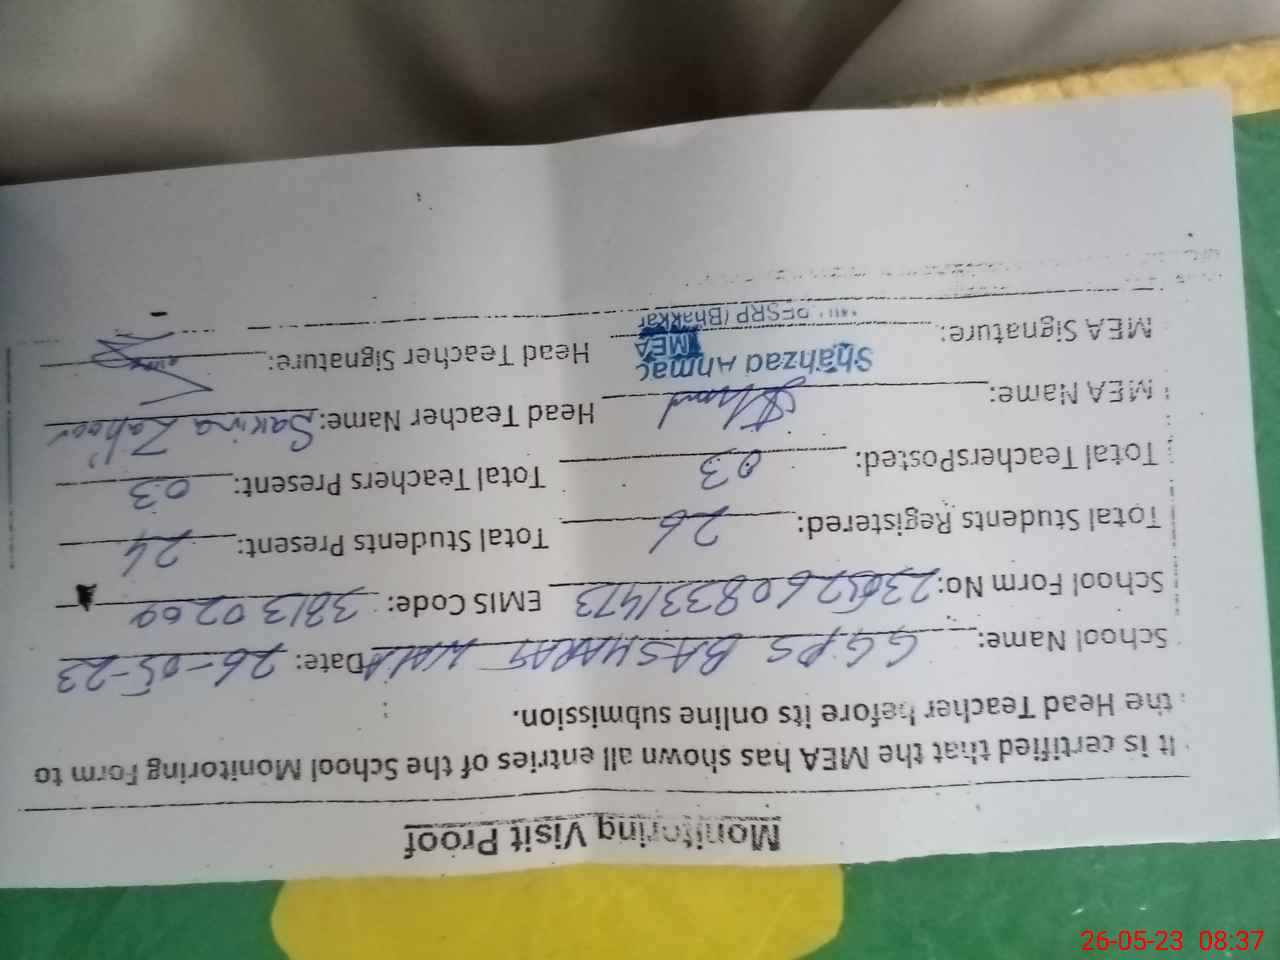 Monitoring Visit Proof
It is certified that the MEA has shown all entries of the School Monitoring Form to
the Head Teacher before its online submission.
School Name: GGPS BASHARAT WALA Date: 26-05-23
School Form No: EMIS Code: 38130209
Total Students Registered: 26 Total Students Present: 24
Total TeachersPosted: 03 Total Teachers Present: 03
MEA Name: Head Teacher Name: Sakina Zahoor
Shahzad Ahmad
MEA
MEA Signature: Head Teacher Signature:
PESRP (Bhakkar
26-05-23 08:37